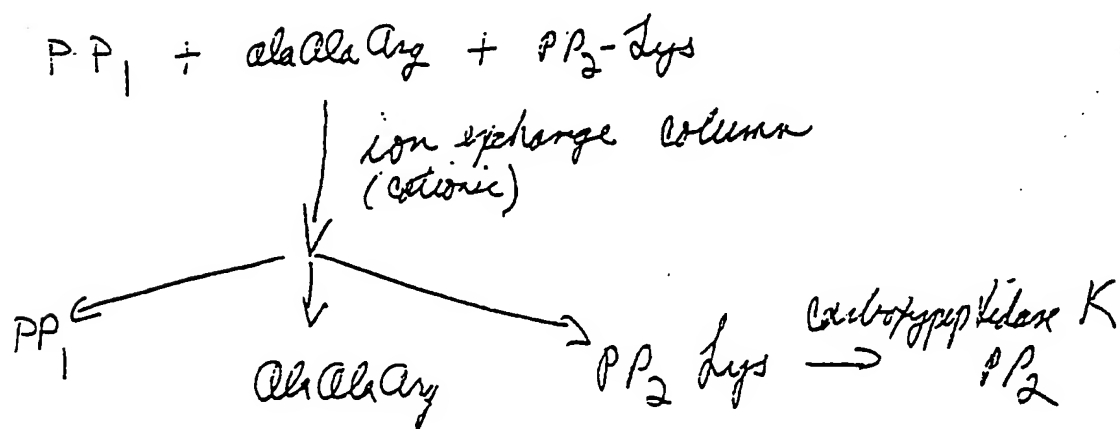 PP1 + AlaAlaArg + PP2-Lys
ion exchange column
(cationic)
PP1
AlaAlaArg
PP2 Lys
carboxypeptidase K
PP2